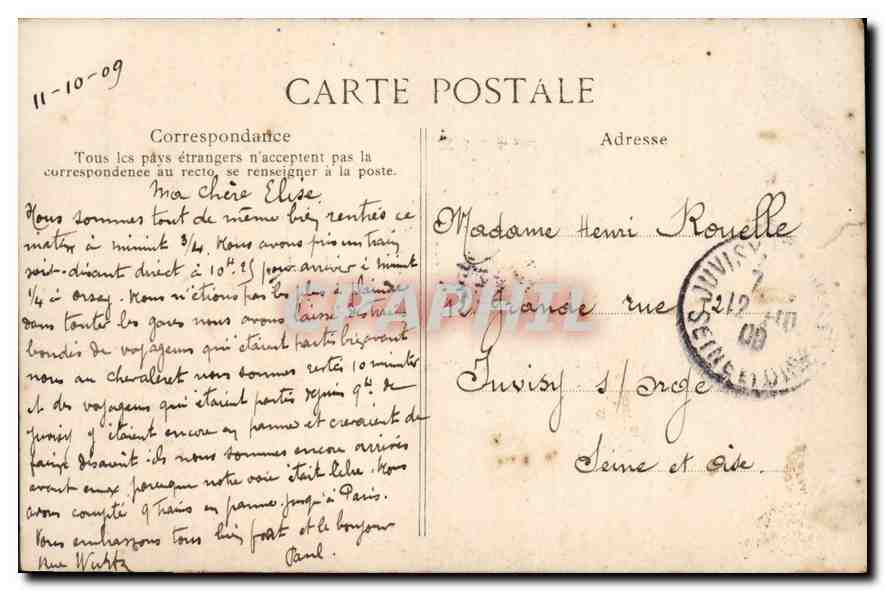 11-10-09
CARTE POSTALE
Correspondance
Tous les pays étrangers n'acceptent pas la
correspondence au recto, se renseigner à la poste.
Adresse
Ma chère Elise.
Nous sommes tout de même bien rentrés ce
matin à minuit 3/4. Nous avons pris un train
soit-disant direct à 10h.25 pour arriver à minuit
1/4 à Orsay. Nous n'étions pas les plus à plaindre
dans toutes les gares nous avons laissé des trains
bondés de voyageurs qui étaient partis avant
nous au Chevaleret nous sommes restés 10 minutes
et des voyageurs qui étaient partis depuis 9h. de
Juvisy y étaient encore en panne et crevaient de
faim disaient-ils nous sommes encore arrivés
avant eux parceque notre voie était libre. Nous
avons compté 9 trains en panne jusqu'à Paris.
Vous embrassons tous bien fort et le bonjour
Rue Wurtz
Paul.
Madame Henri Rouelle
Grande rue 21
Juvisy s/ orge
Seine et Oise.
JUVISY
SEINE ET OISE
7
12
09
CPAPHIL